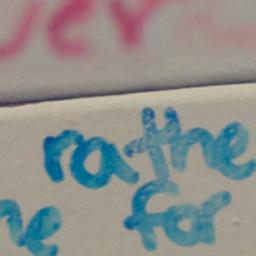 ver
rathe
e for